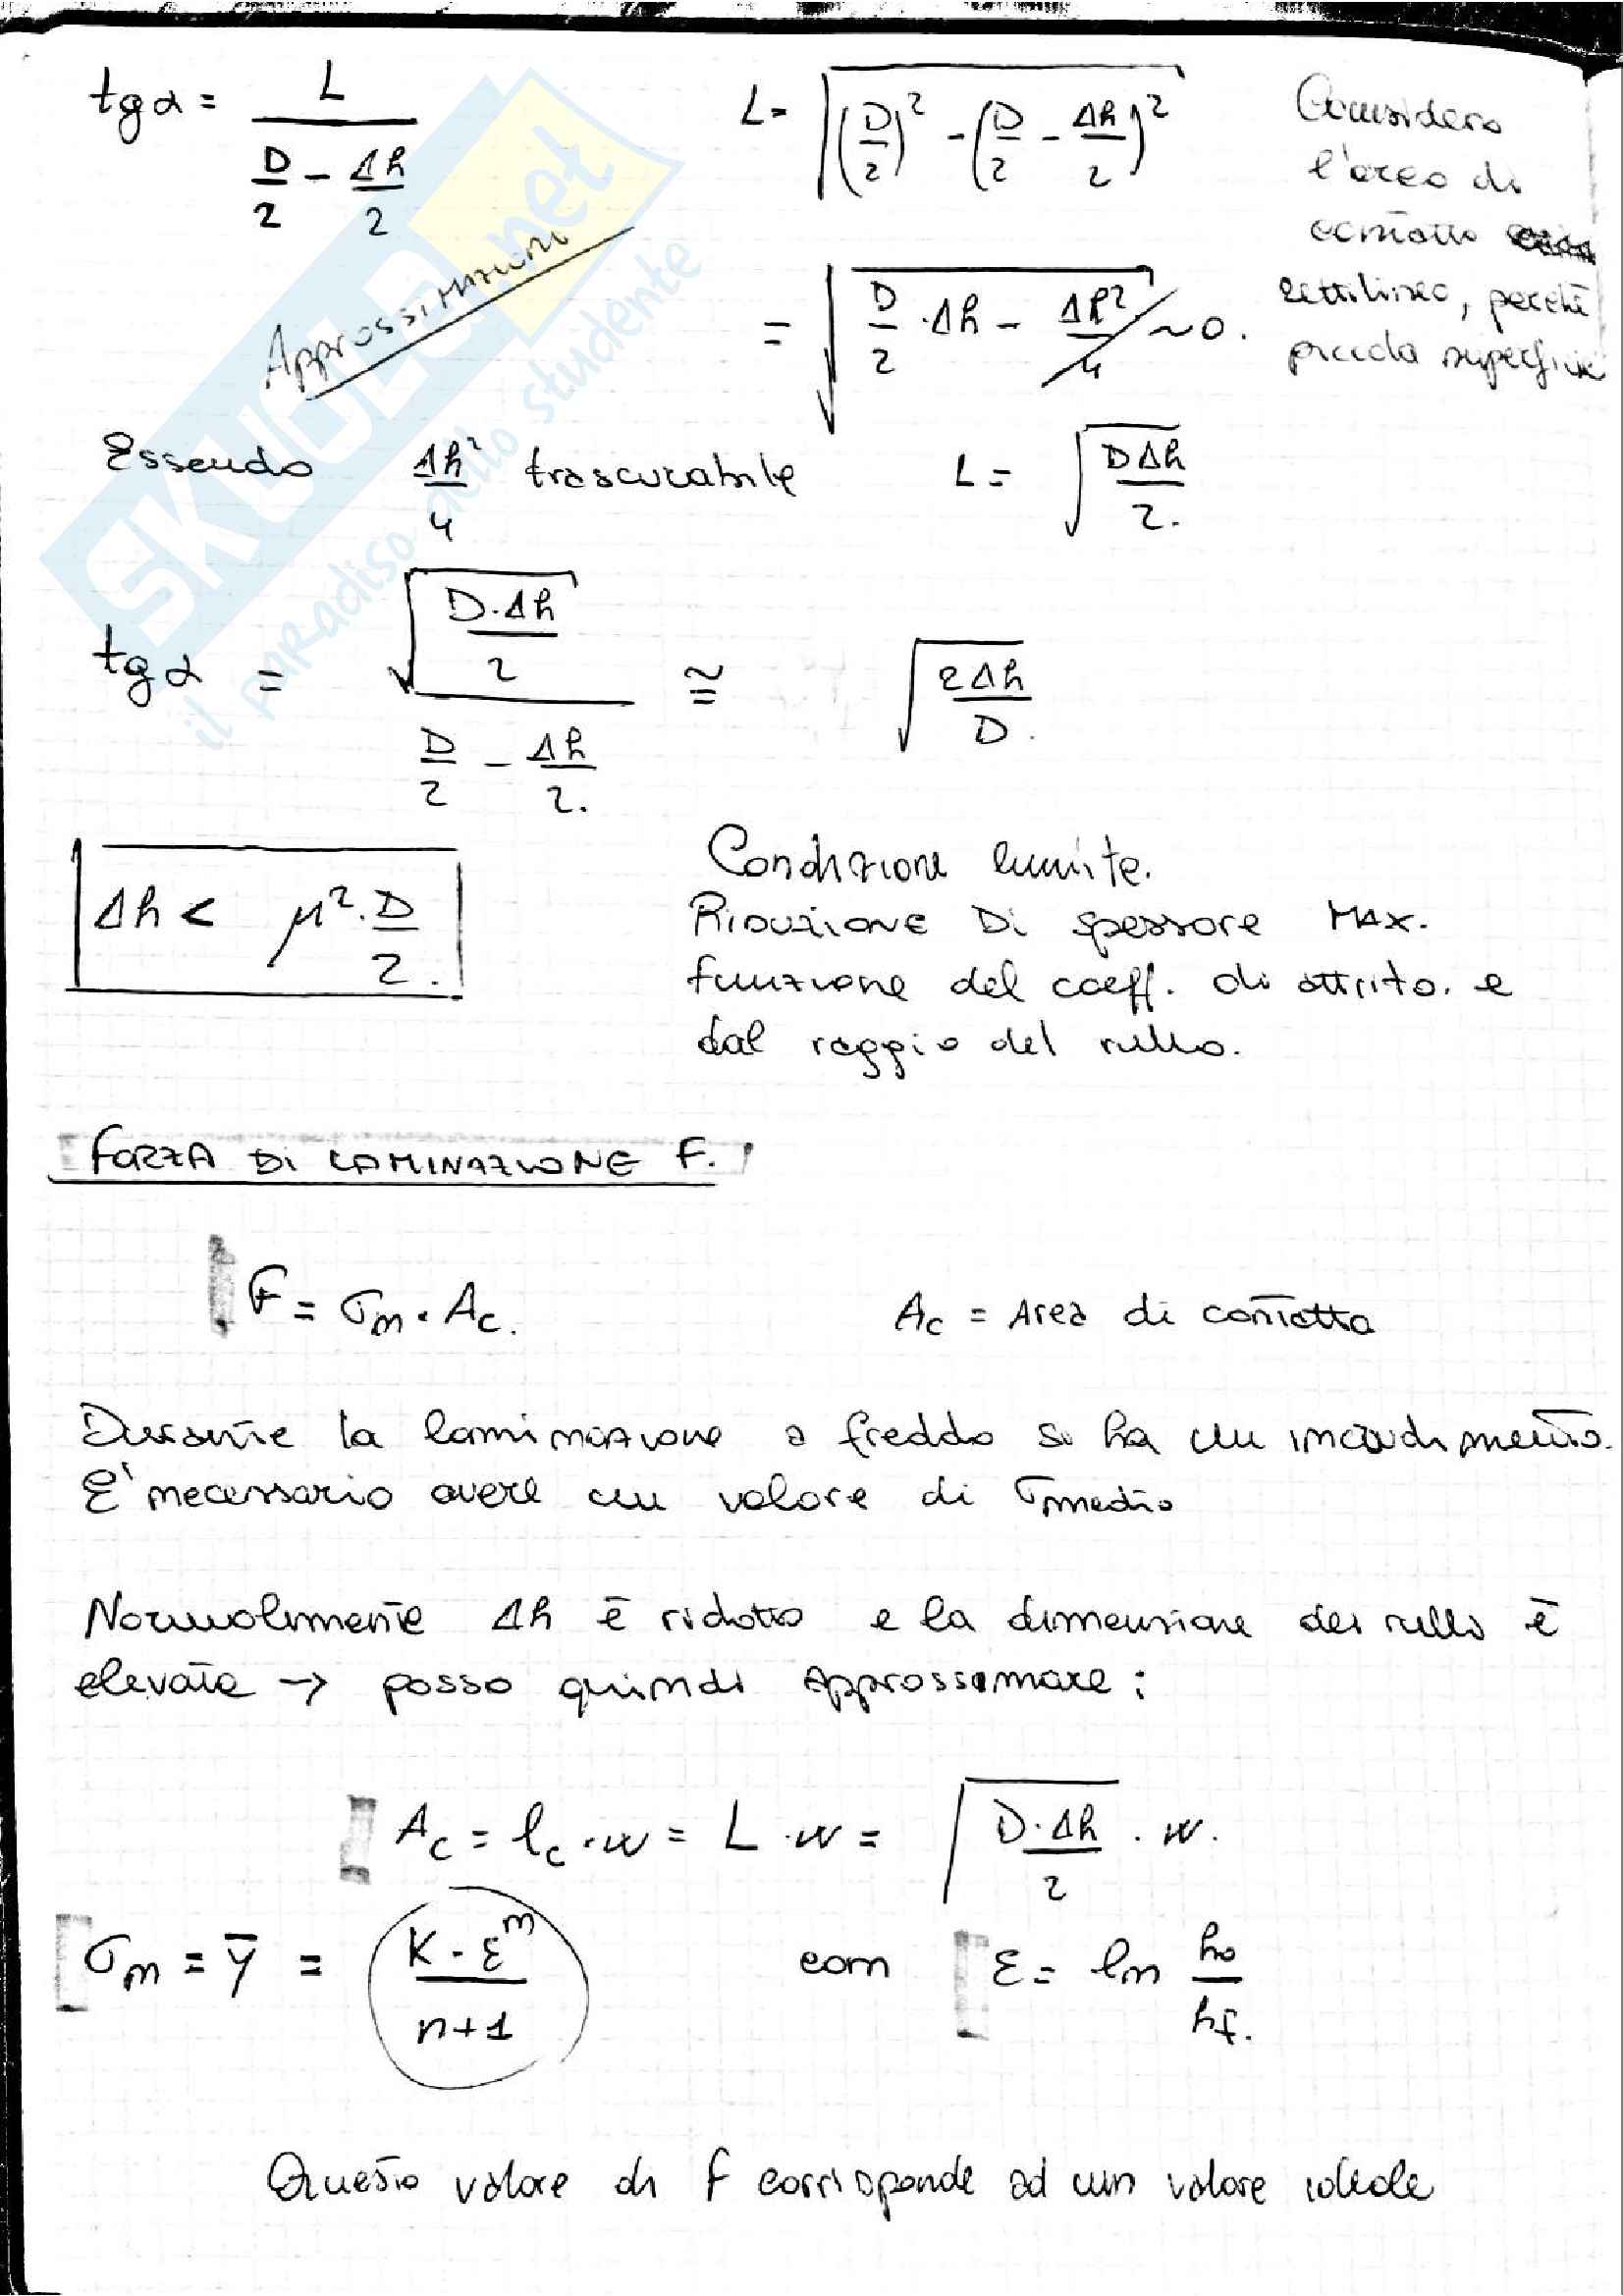 tgα = L / (D/2 - Δh/2)
L = √((D/2)² - (D/2 - Δh/2)²)
Considero
l'arco di
contatto
rettilineo, perchè
piccola superficie
Approssimazioni
= √(D/2 · Δh - Δh²/4) ~0.
Essendo Δh²/4 trascurabile L = √(DΔh/2.)
tgα = √(D·Δh/2) / (D/2 - Δh/2.) ≅ √(2Δh/D.)
Δh < μ² · D/2.
Condizione limite.
Riduzione Di spessore MAX.
funzione del coeff. di attrito. e
dal raggio del rullo.
FORZA DI LAMINAZIONE F.
F = σm · Ac.
Ac = Area di contatto
Durante la laminazione a freddo si ha un incrudimento.
E' necessario avere un valore di σmedio
Normalmente Δh è ridotto e la dimensione dei rulli è
elevata → posso quindi approssimare:
Ac = lc · w = L · w = √(D·Δh/2) · w.
σm = Y̅ = K · ε^n / n+1 con ε = ln ho/hf.
Questo valore di F corrisponde ad un valore ideale
SKUOLA.net
il paradiso dello studente